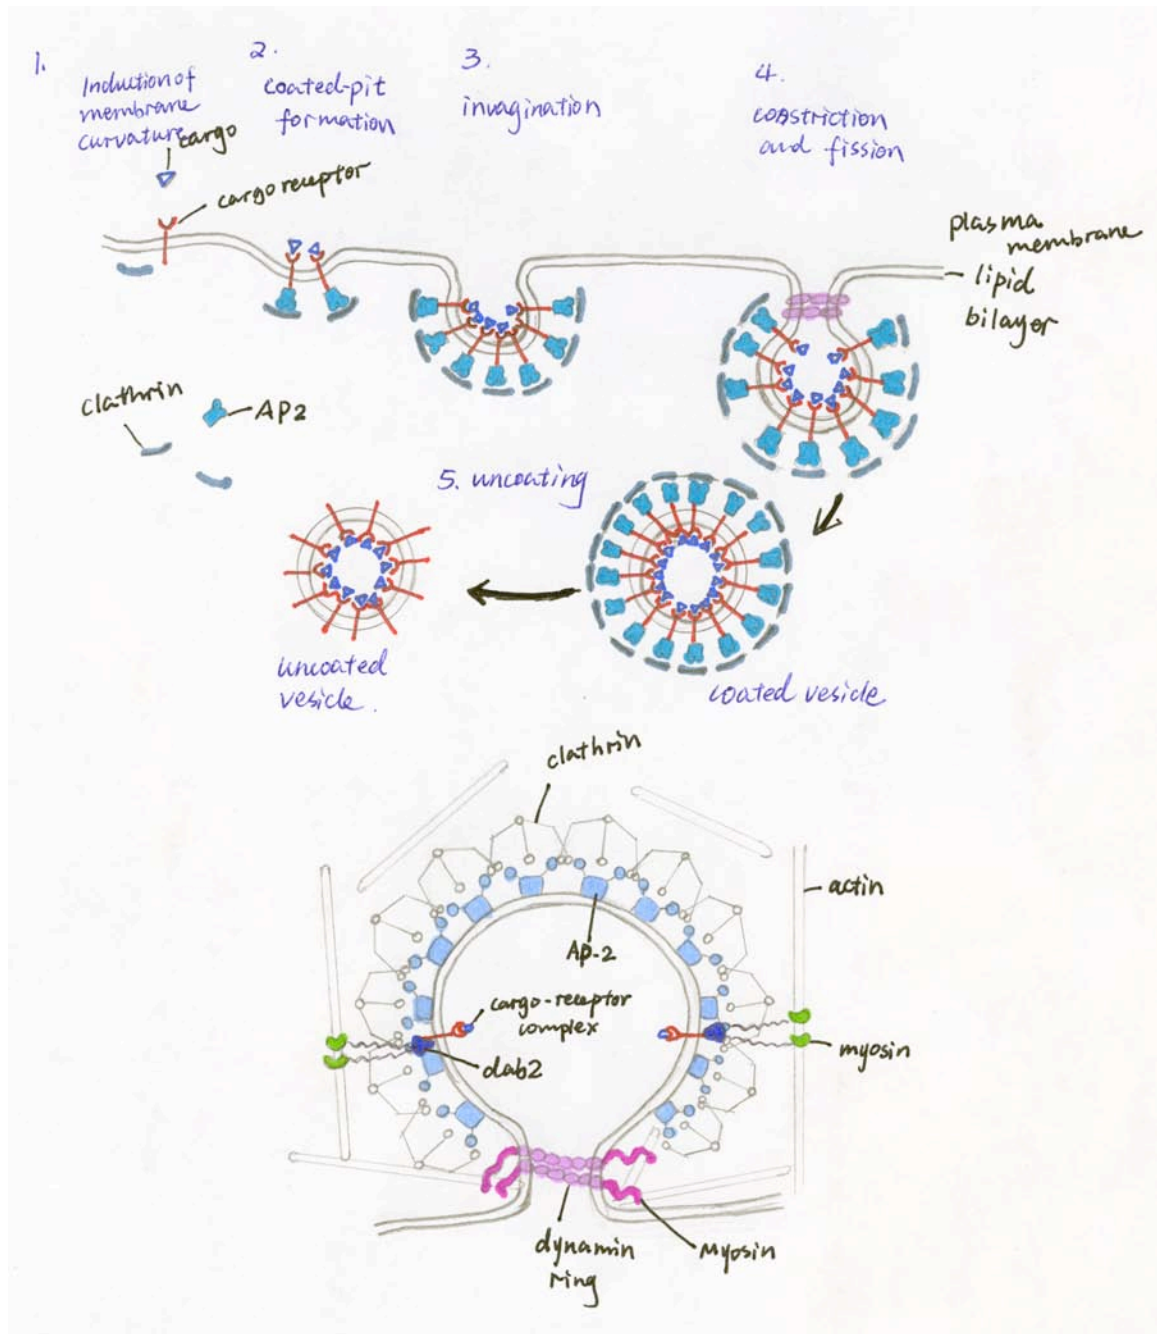 1.
Induction of
membrane
curvature
2.
coated-pit
formation
3.
invagination
4.
constriction
and fission
cargo
cargo receptor
plasma
membrane
lipid
bilayer
clathrin
AP2
5. uncoating
uncoated
vesicle.
coated vesicle
clathrin
actin
AP-2
cargo-receptor
complex
dab2
myosin
dynamin
ring
Myosin